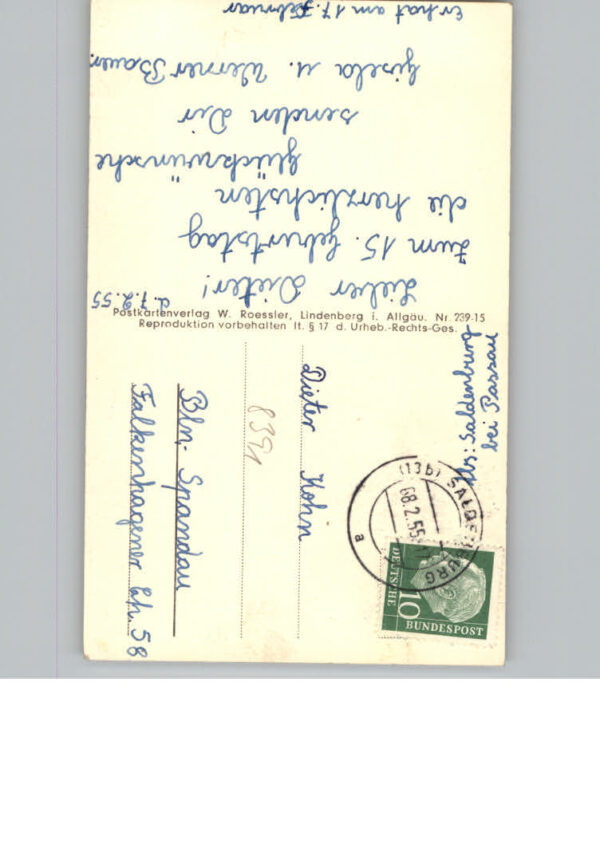 d. 7.2.55
Lieber Dieter!
zum 15. Geburtstag
die herzlichsten
Glückwünsche
senden Dir
Gisela u. Werner Bauer.
Er hat am 17. Februar
Postkartenverlag W. Roessler, Lindenberg i. Allgäu. Nr. 239-15
Reproduktion vorbehalten lt. § 17 d. Urheb.-Rechts-Ges.
Abs: Saldenburg
bei Passau
(13b) SALDENBURG
-8.2.55
a
DEUTSCHE
BUNDESPOST
10
Dieter Kohn
8391
Bln.- Spandau
Falkenhagener Str. 58